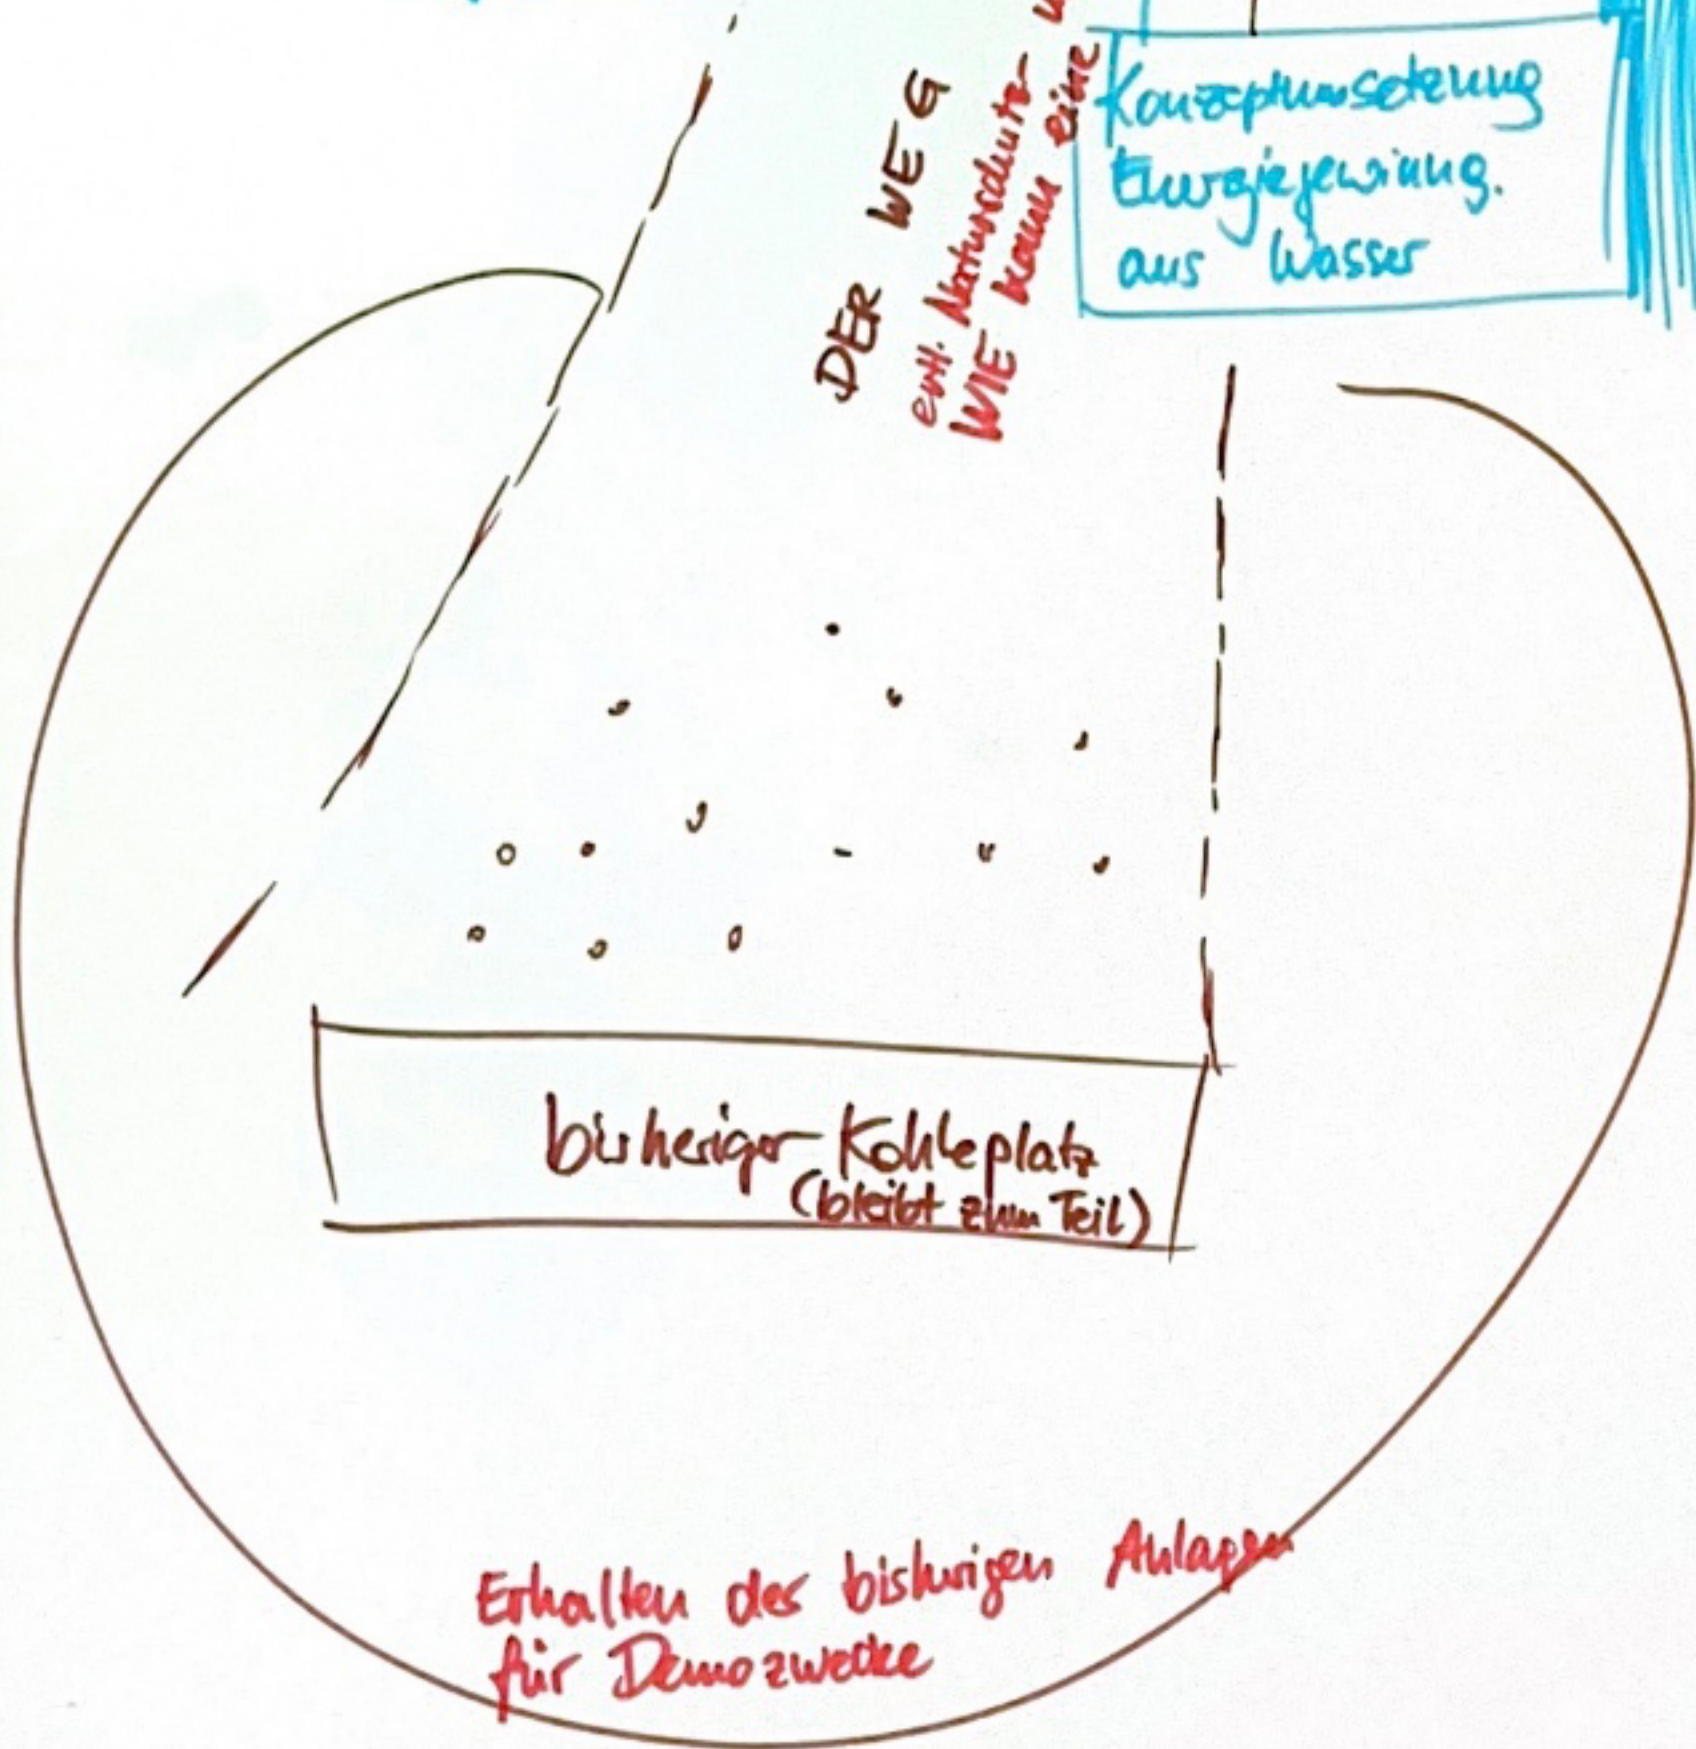 DER WEG
evtl. Naturschutz-
WIE kann eine
Konzeptumsetzung
Energiegewinng.
aus Wasser
bisheriger Kohleplatz
(bleibt zum Teil)
Erhalten der bisherigen Anlagen
für Demozwecke